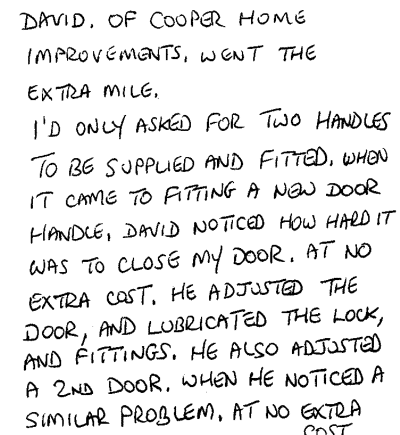 DAVID. OF COOPER HOME
IMPROVEMENTS. WENT THE
EXTRA MILE.
I'D ONLY ASKED FOR TWO HANDLES
TO BE SUPPLIED AND FITTED. WHEN
IT CAME TO FITTING A NEW DOOR
HANDLE, DAVID NOTICED HOW HARD IT
WAS TO CLOSE MY DOOR. AT NO
EXTRA COST. HE ADJUSTED THE
DOOR, AND LUBRICATED THE LOCK,
AND FITTINGS. HE ALSO ADJUSTED
A 2ND DOOR. WHEN HE NOTICED A
SIMILAR PROBLEM. AT NO EXTRA
COST